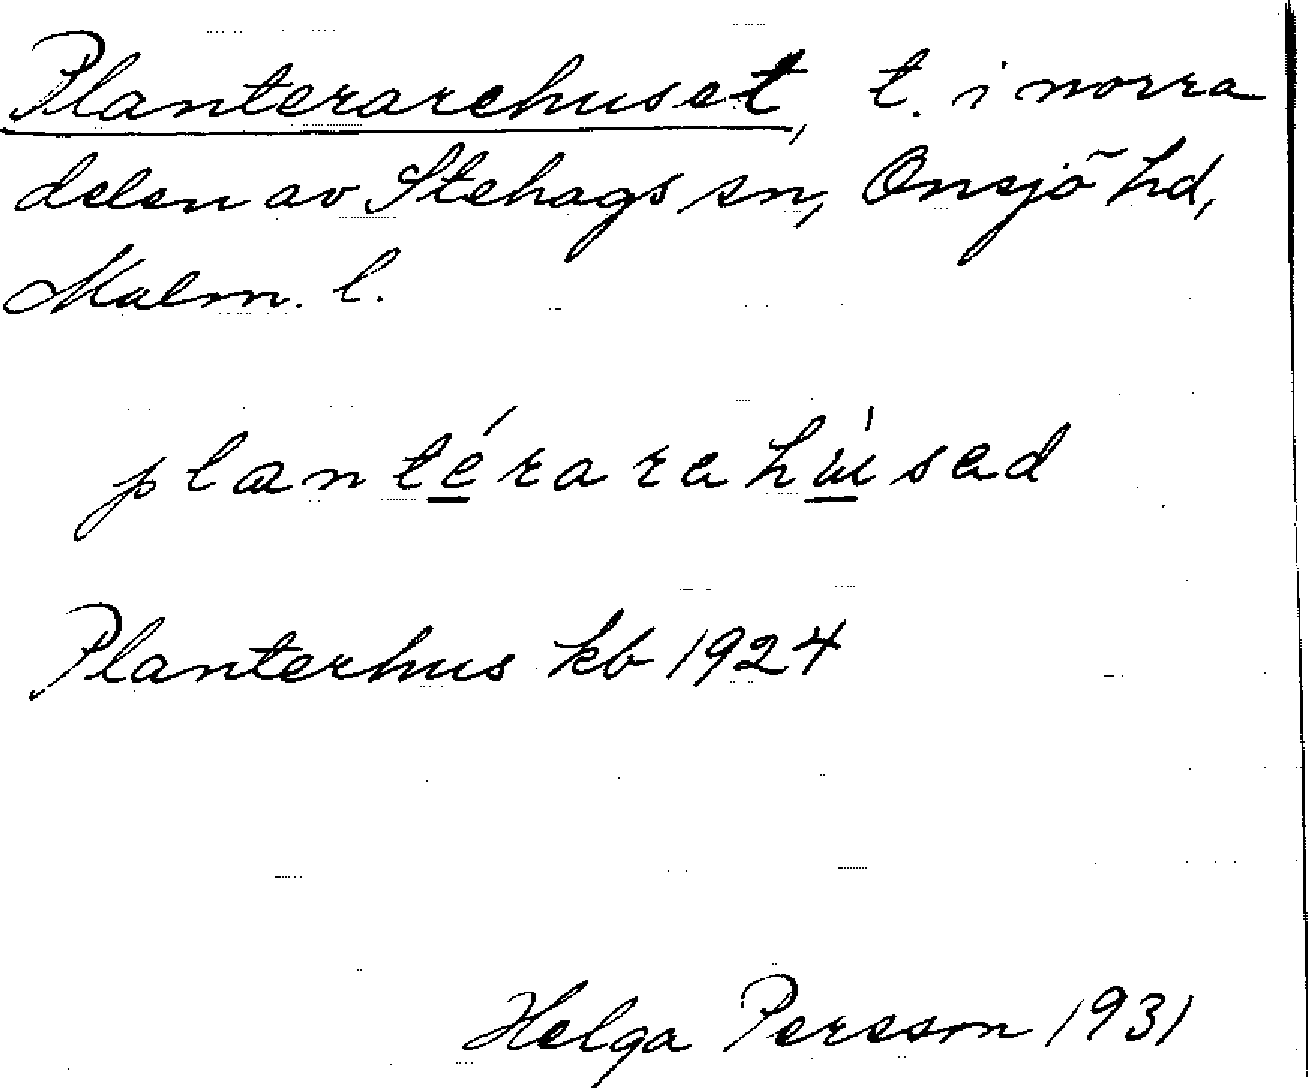 Planterarehuset, t. i norra
delen av Stehags sn, Onsjö hd,
Malm. l.
plantérarahúsad
Planterhus kb 1924
Helga Persson 1931